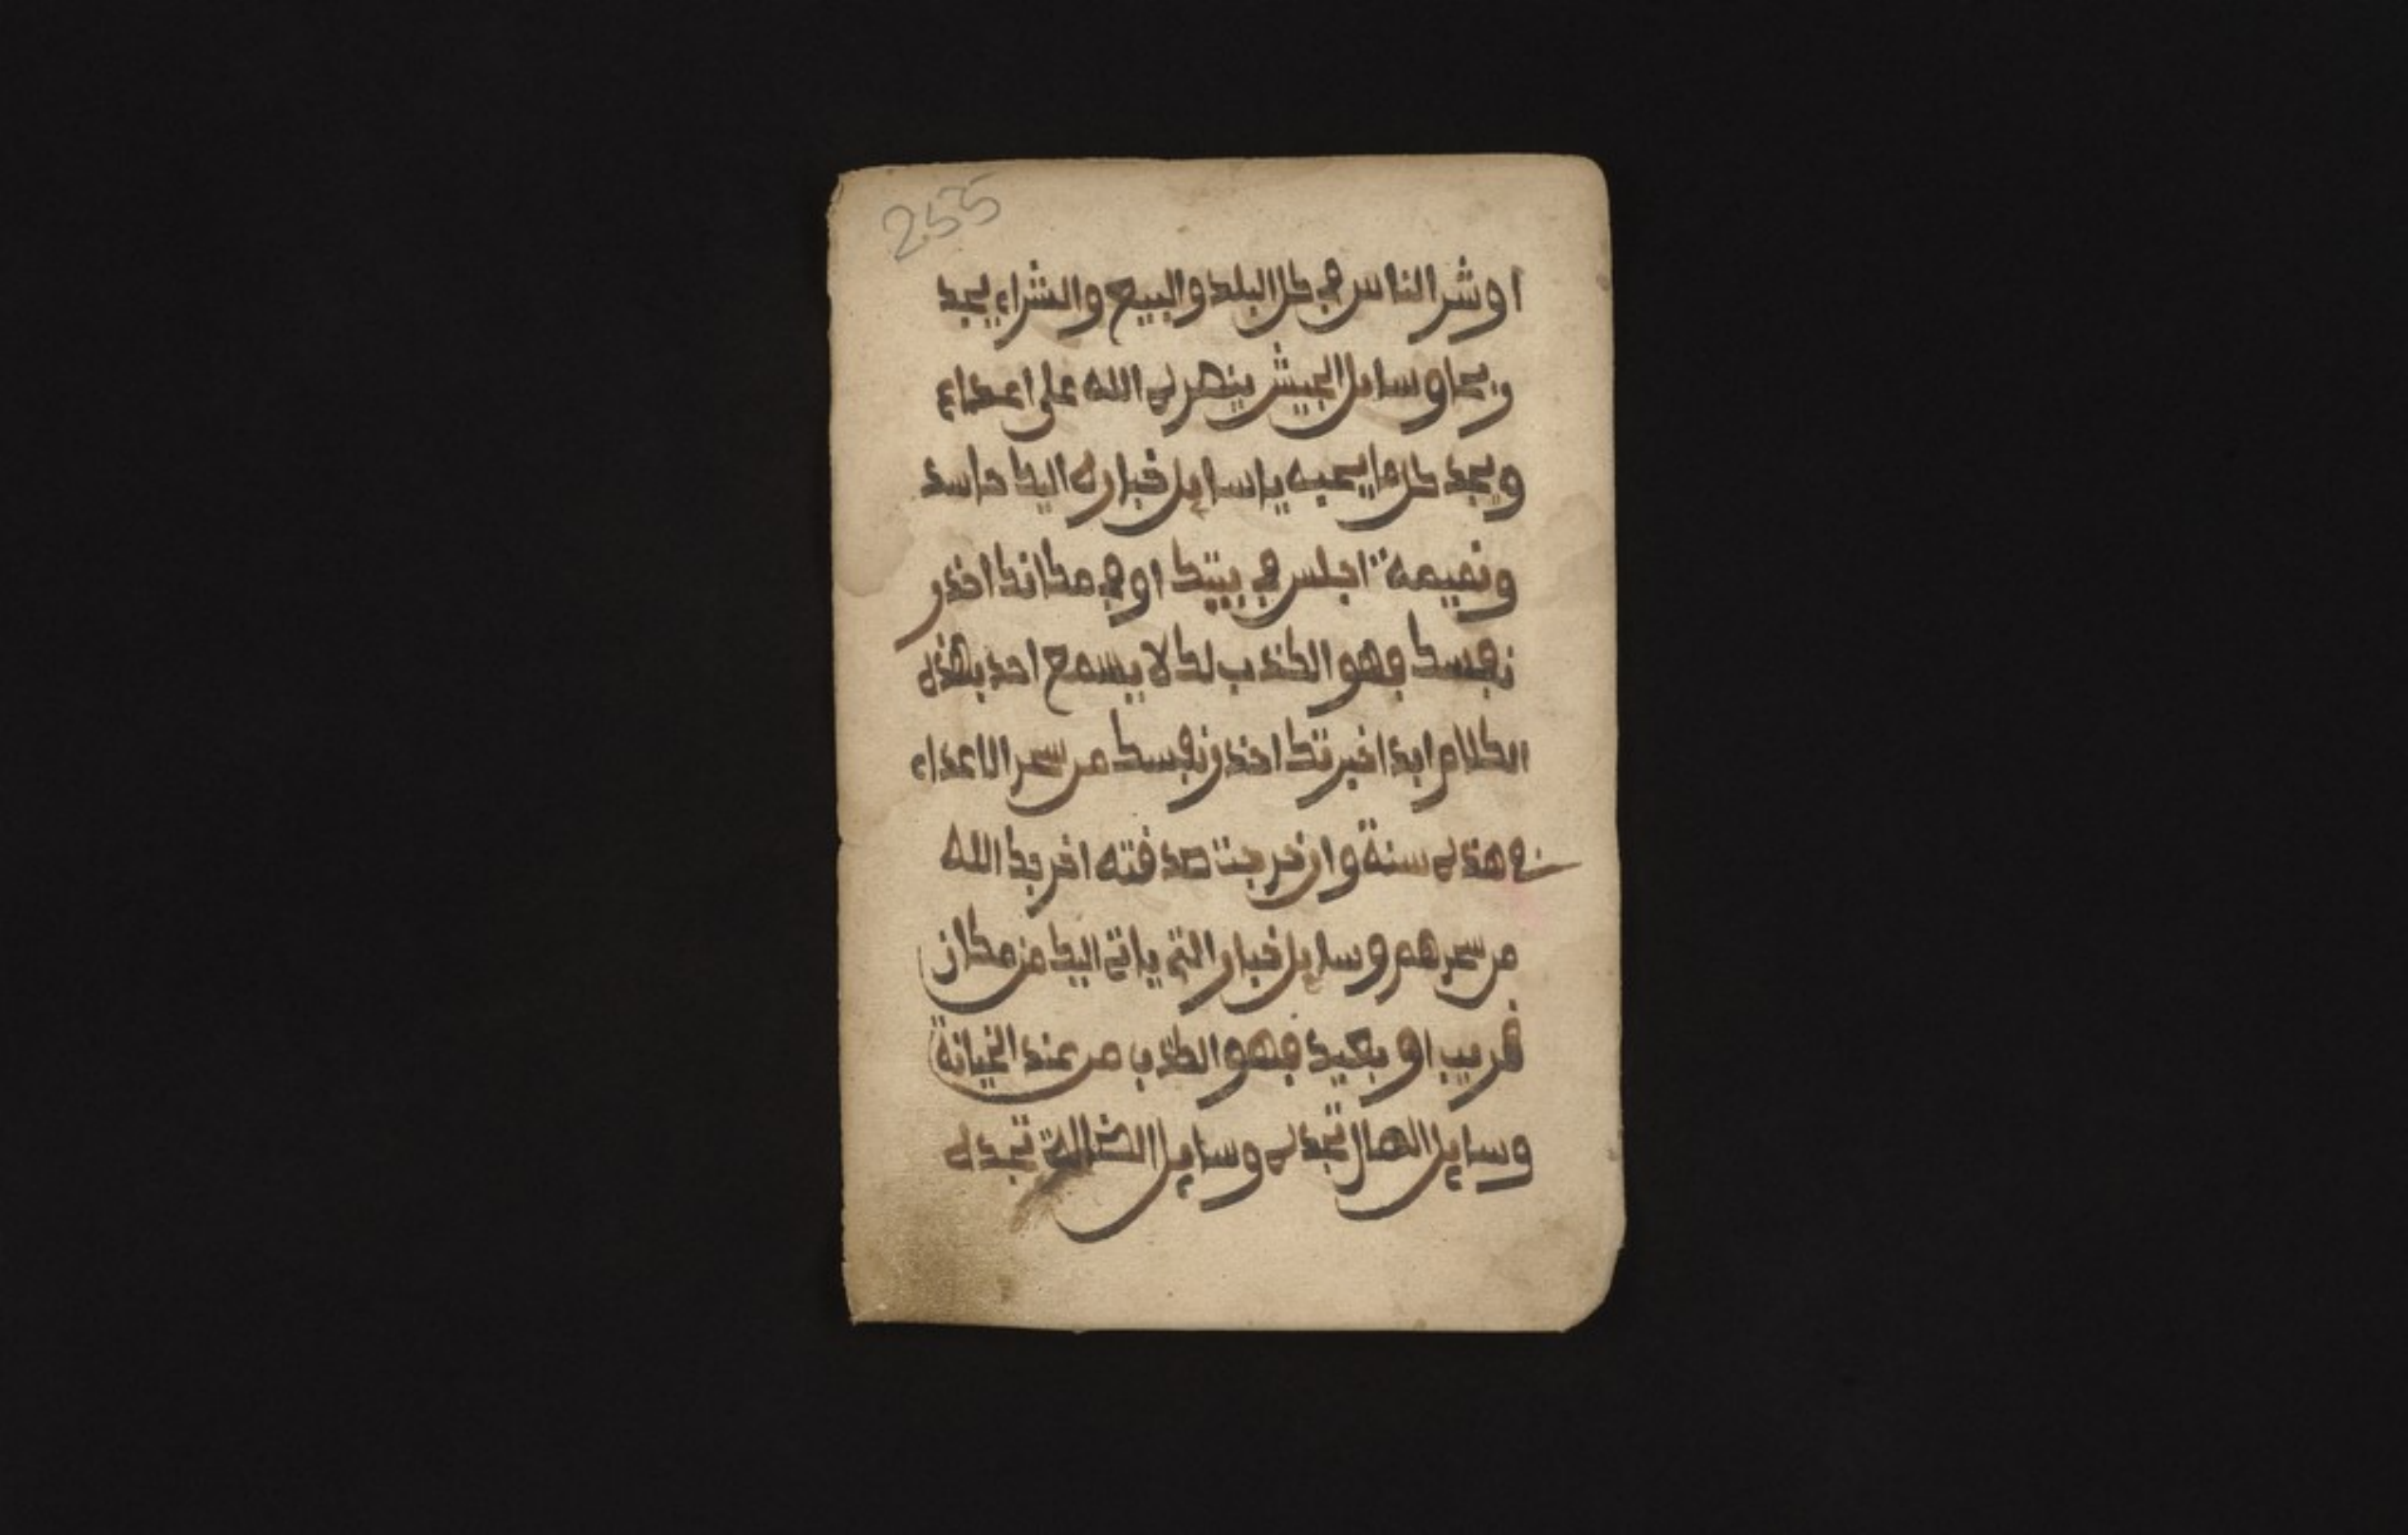 255
اوشر الناس في كل البلد والبيع والشراء يجد
ربحا وسايل الجيش ينصره الله على اعداء
ويجد كل ما يحبه يا سايل خباره اليك حاسد
ونميمة اجلس في بيتك او في مكانك احذر
نفسك فهو الكذب لك لا يسمع احد بهذه
الكلام ابدا خبرتك احذر نفسك من سحر الاعداء
في هذه سنة وان خرجت صدقته اخرجك الله
من سحرهم وسايل خبار التي ياتي اليك من مكان
قريب او بعيد فهو الكذب من عند الخيانة
وسايل المال تجده وسايل الضالة تجده